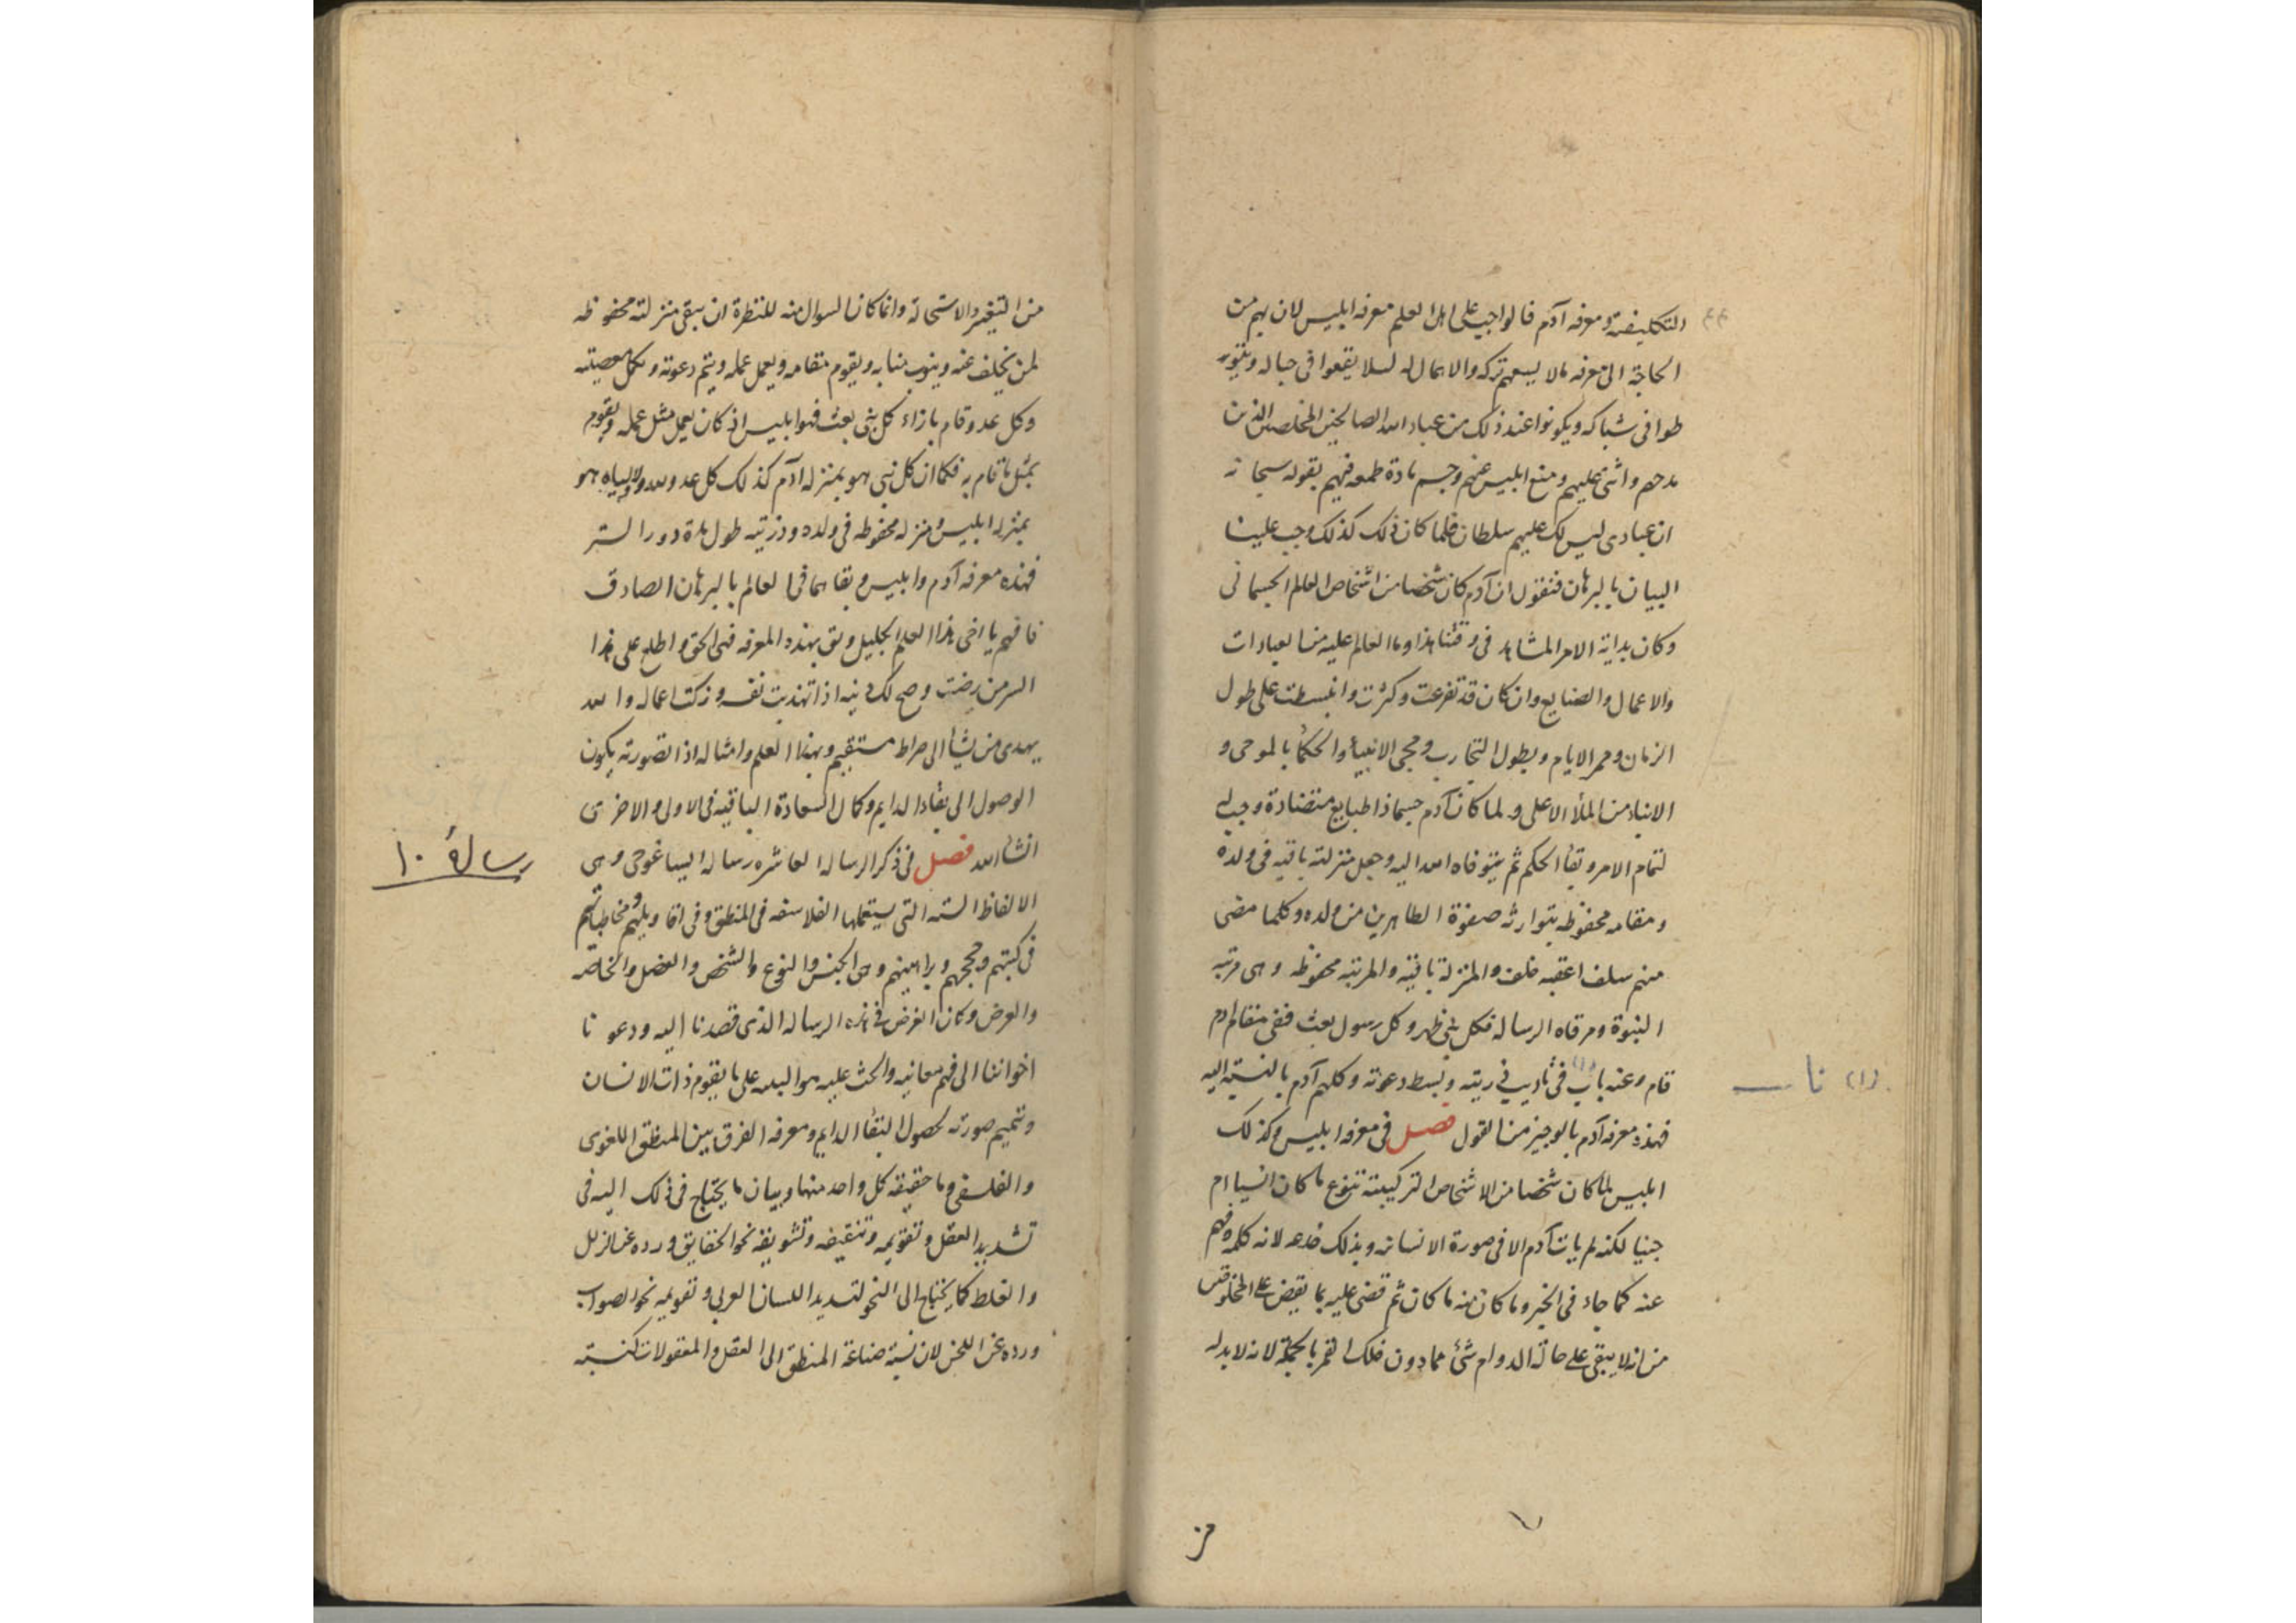 التكليفية ومعرفه آدم فالواجب على اهل العلم معرفه ابليس لان بهم من
الحاجة الى معرفه مالا يسعهم تركه والاهمال له لسلا يقعوا فى حباله ويتور
طوا فى شباكه ويكونوا عند ذلك من عباد الله الصالحين المخلصين الذين
مدحهم واثنى عليهم ومنع ابليس عنهم وحسم مادة طمعه فيهم بقوله سبحانه
ان عبادى ليس لك عليهم سلطان فلما كان ذلك كذلك وجب علينا
البيان بالبرهان فنقول ان آدم كان شخصا من اشخاص العالم الجسمانى
وكان بداية الامر المشاهد فى وقتنا هذا وما العالم عليه من العبادات
والاعمال والصنايع وان كان قد تفرعت وكثرت وانبسطت على طول
الزمان وممر الايام وبطول التجارب ومجى الانبيأ والحكمأ بالموحى و
الانباء من الملأ الاعلى ولما كان آدم جسما ذا طبايع متضادة وجب له
لتمام الامر وبقأ الحكم ثم يتوفاه الله اليه وجعل منزلته باقيه فى ولده
ومقامه محفوظه يتوارثه صفوة الطاهرين من ولده وكلما مضى
منهم سلف اعقبه خلف والمنزلة باقيه والمرتبه محفوظه وهى مرتبه
النبوة ومرقاه الرسالة فكل نبى ظهر وكل رسول بعث ففى مقام ادم
قام وعنه باب فى تاديب ذريته وبسط دعوته وكلهم آدم بالنسبة اليه
(١) ناب
فهذه معرفه آدم بالوجيز من القول فصل فى معرفه ابليس وكذلك
ابليس لما كان شخصا من الاشخاص التركيبية بنوع ما كان انسيا ام
جنيا لكنه لم يات آدم الا فى صورة الانسانه وبذلك خدعه لانه كلمه وفهم
عنه كما جاء فى الخبر وما كان منه ما كان ثم قضى عليه بما يقضى على المخلوقين
من انه لا يبقى على حالة الدوام شئ مما دون فلك القمر بالجملة لانه لا بد له
من
من التغير والاستحالة وانما كان السوال منه للنظرة ان يبقى منزلته محفوظه
لمن يخلف عنه وينوب منابه ويقوم مقامه ويعمل عمله ويتم دعوته وتكمل معصيته
وكل عدو قام بازاء كل نبى بعث فهو ابليس اذ كان يعمل مثل عمله ويقوم
بمثل ما قام به فكما ان كل نبى هو بمنزله آدم كذلك كل عدو لله ولاوليائه هو
بمنزله ابليس ومنزله محفوظه فى ولده وذريته طول مدة دور الستر
فهذه معرفه آدم وابليس وبقاهما فى العالم بالبرهان الصادق
فافهم يا اخى هذا العلم الجليل وثق بهذه المعرفه فهى الحق واطلع على هذا
السر من رضيت وصح لك دينه اذا تهذبت نفسه وزكت اعماله والله
يهدى من يشأ الى صراط مستقيم وبهذا العلم وامثاله اذا تصورته يكون
الوصول الى بقاء الدايم وكمال السعادة الباقيه فى الاولى والاخرى
انشأ الله فصل فى ذكر الرساله العاشره رساله ايساغوجى وهى
رسالة ١٠
الالفاظ الستة التى يستعملها الفلاسفه فى المنطق وفى اقاويلهم ومخاطباتهم
فى كتبهم وحججهم وبراهينهم وهى الجنس والنوع والشخص والفصل والخاصه
والعرض وكان الغرض فى هذه الرساله الذى قصدنا اليه ودعونا
اخواننا الى فهم معانيه والحث عليه هو البيه على ما يقوم ذات الانسان
وتتميم صورته لحصول البقأ الدايم ومعرفه الفرق بين المنطق اللغوى
والفلسفى وما حقيقه كل واحد منها وبيان ما يحتاج فى ذلك اليه فى
تشديد العقل وتقويمه وتثقيفه وتشويقه نحو الحقايق ورده عن الزلل
والغلط كما يحتاج الى النحو لتسديد اللسان العربى وتقويمه نحو الصواب
ورده عن اللحن لان نسبة صناعة المنطق الى العقل والمعقولات كنسبته